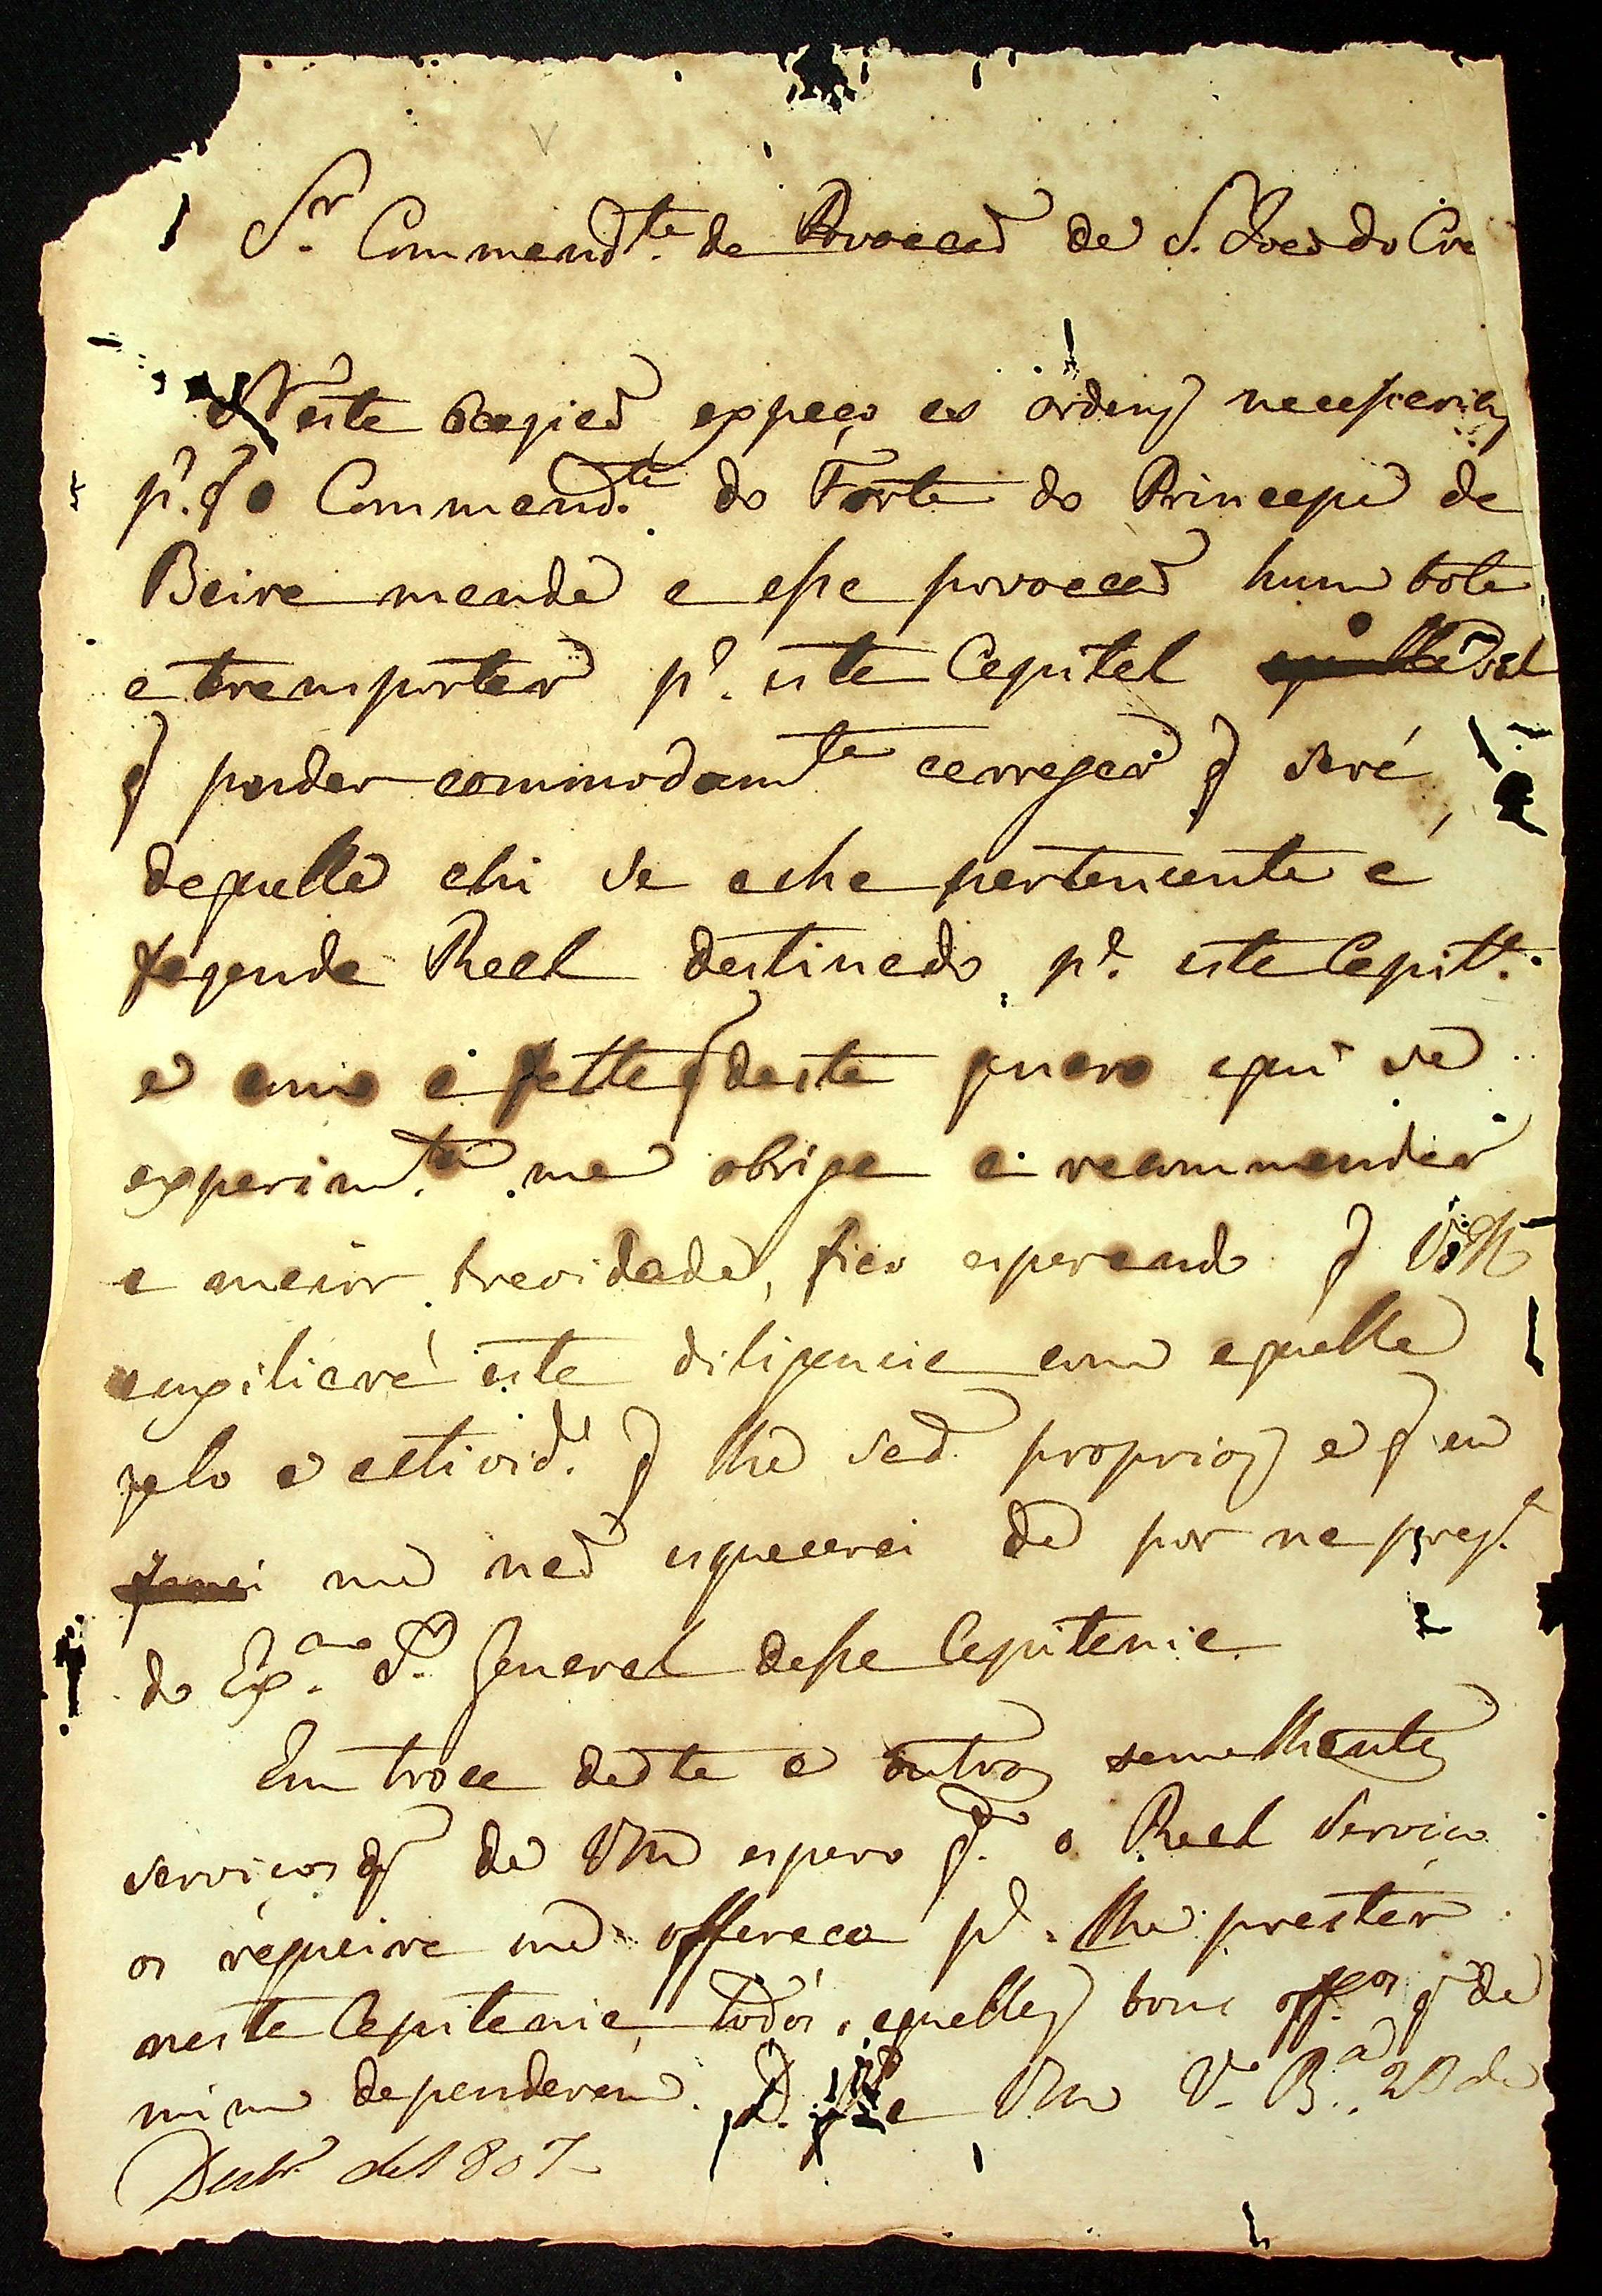 Sr. Commandte. da Povoação de S. João do Cra
Nesta occazião expeço as ordens necessarias
pa. q o Commandte. do Forte do Principe da
Beira mande a essa povoação hum bote
a transportar pa. esta Capital sal
q poder commodamte carregar q será
daquelle ahi se acha pertencente á
fazenda Real destinado pa. esta Capital.
e como a falta q deste genero aqui se
experimta. me obriga a recommendar
a maior brevidade, fico esperando q VM
auxiliará esta diligencia com aquelle
zelo e activide. q lhe são proprios e q eu
me não esquecerei de por na prezca.
do Exmo. Sr. General dessa Capitania.
Em troca desta e outros semelhantes
serviços q de VM espero qdo. o Real Serviço
os requeira me offereço pa. lhe prestar
nesta Capitania todos aquelles bons offos. q de
mim dependerem. D. Ge a VM Va. Ba. 28 de
Dezbro de 1807